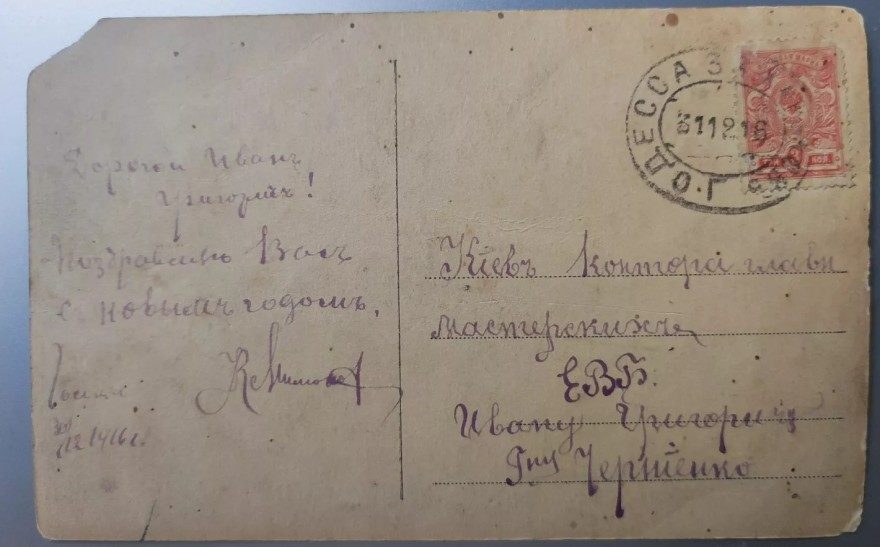 Дорогой Иванъ
Григорич!
Поздравляю Васъ
с новымъ годомъ.
30/12 1916 г.
ОДЕССА
31 12 16
Кіевъ Контора главн
мастерскихъ
ЕВБ.
Ивану Григоричу
Гну Чертенко